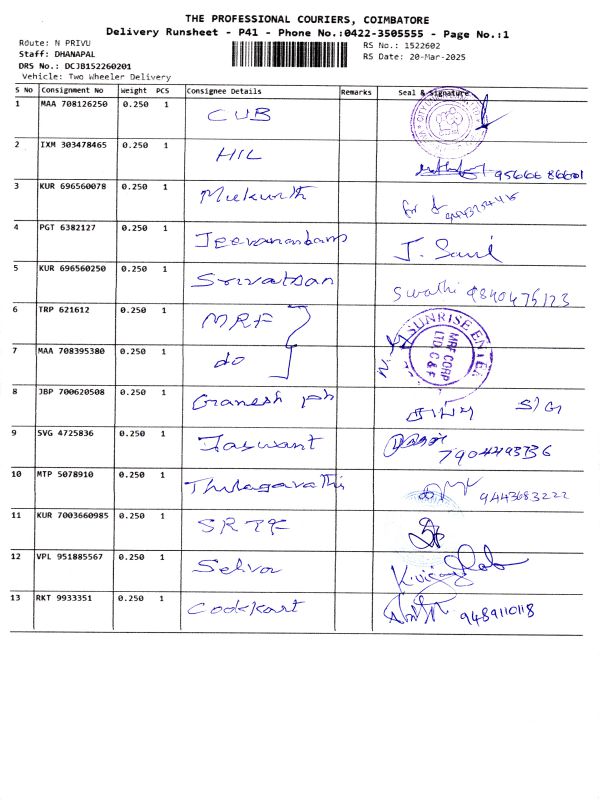 THE PROFESSIONAL COURIERS, COIMBATORE
Delivery Runsheet - P41 - Phone No.:0422-3505555 - Page No.:1
Route: N PRIVU
RS No.: 1522602
Staff: DHANAPAL
RS Date: 20-Mar-2025
DRS No.: DCJB152260201
Vehicle: Two Wheeler Delivery
S No Consignment No Weight PCS Consignee Details Remarks Seal & Signature
1 MAA 708126250 0.250 1 CUB
2 IXM 303478465 0.250 1 HIL 9566686601
3 KUR 696560078 0.250 1
4 PGT 6382127 0.250 1 Jeevanandam J. Sanil
5 KUR 696560250 0.250 1 Srivatsan Swathi 9840475123
6 TRP 621612 0.250 1 MRF SUNRISE ENTER
MRF CORP
LTD. C & F
7 MAA 708395380 0.250 1 do
8 JBP 700620508 0.250 1 Ganesh ph S/G
9 SVG 4725836 0.250 1 Jaswant 7904493736
10 MTP 5078910 0.250 1 Thilagavathi 9443683222
11 KUR 7003660985 0.250 1
12 VPL 951885567 0.250 1 Selva
13 RKT 9933351 0.250 1 Cookkart 9489110118